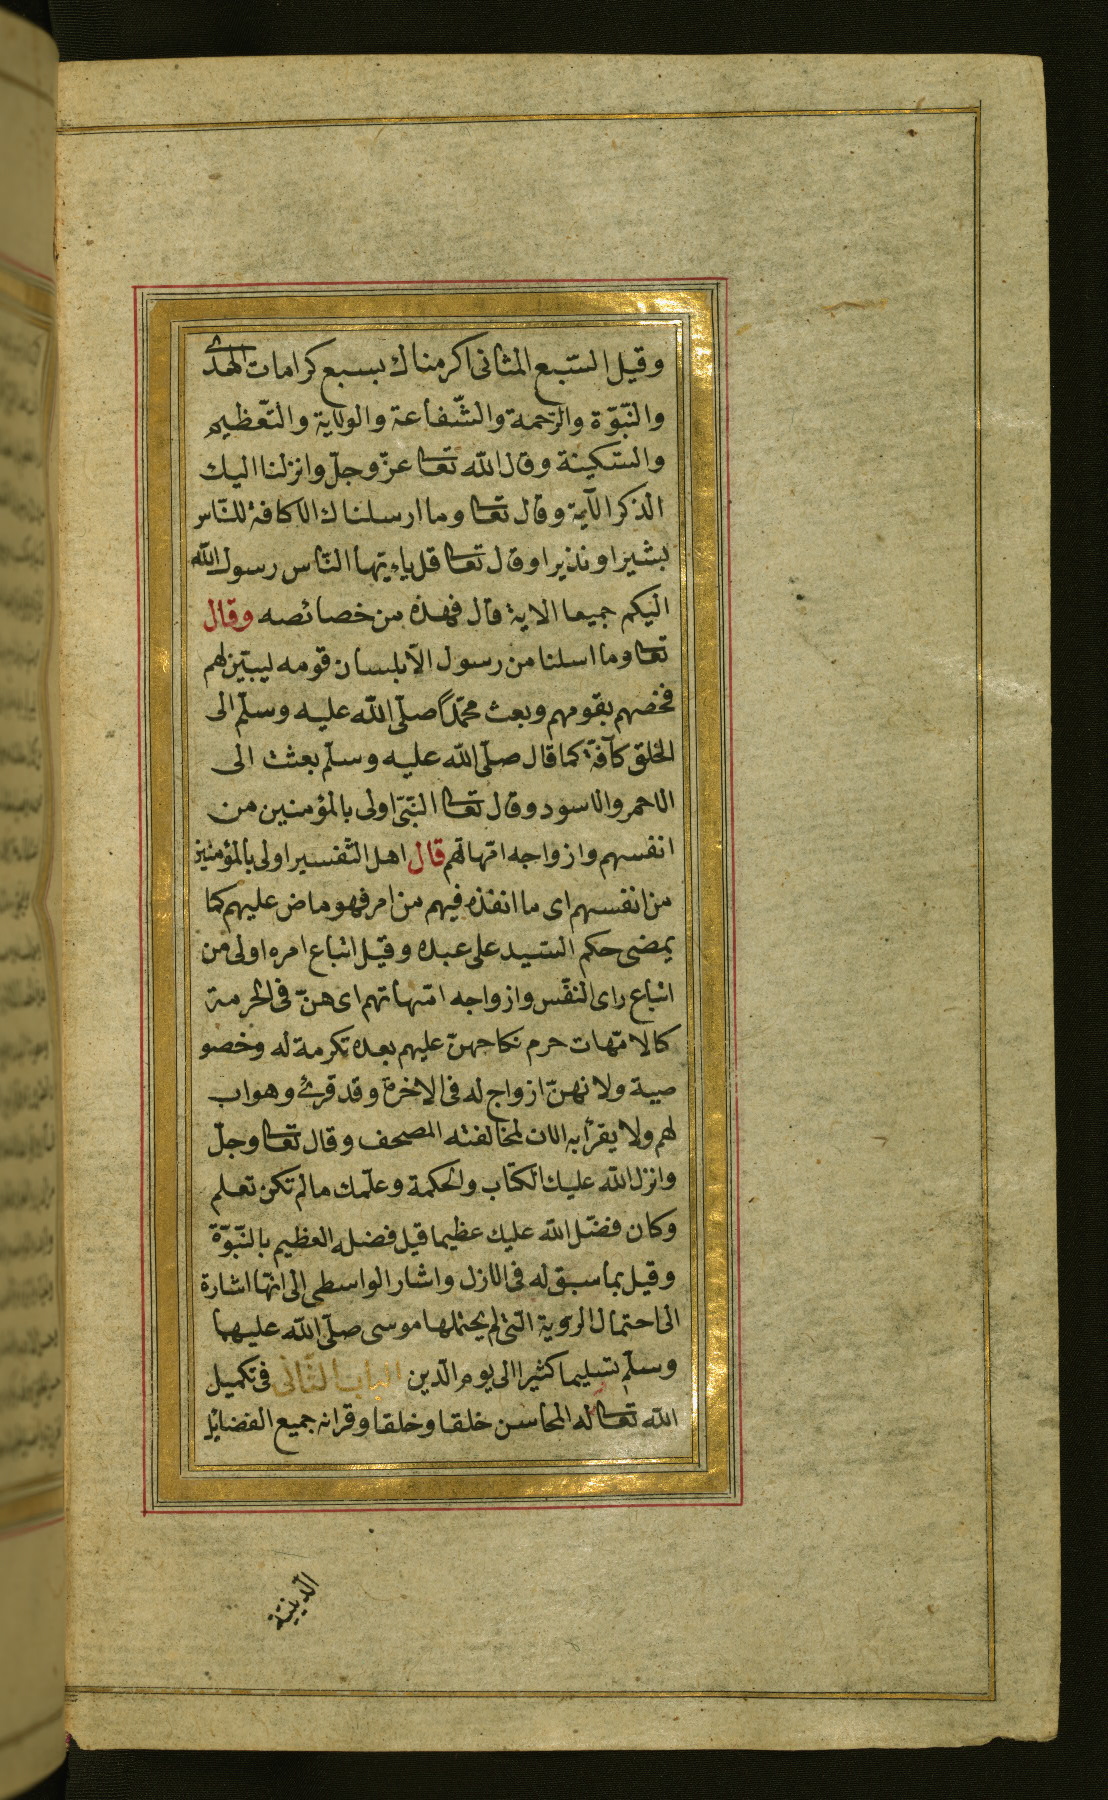 وقيل السّبع المثانى اكرمناك بسبع كرامات الهدى
والنّبوّة والرّحمة والشّفاعة والولاية والتّعظيم
والسّكينة وقال الله تعا عزّ وجلّ وانزلنا اليك
الذكر الآية وقال تعا وما ارسلناك الا كافة للنّاس
بشيرا ونذيرا وقال تعا قل ياءيّها النّاس رسول الله
اليكم جميعا الاية قال فهذه من خصائصه وقال
تعا وما اسلنا من رسول الّا بلسان قومه ليبيّن لهم
فخصّهم بقومهم وبعث محمّدًا صلّى الله عليه وسلّم الى
الخلق كآفّة كما قال صلّى الله عليه وسلّم بعثت الى
الاحمر والاسود وقال تعا النّبىّ اولى بالمؤمنين من
انفسهم وازواجه امّهاتهم قال اهل التّفسير اولى بالمؤمنين
من انفسهم اى ما انفذه فيهم من امر فهو ماض عليهم كما
يمضى حكم السّيد على عبده وقيل اتباع امره اولى من
اتباع راى النّفس وازواجه امّهاتهم اى هنّ فى الحرمة
كالامّهات حرم نكاحهنّ عليهم بعده تكرمة له وخصو
صية ولانهنّ ازواج له فى الاخرة وقد قرئ وهو اب
لهم ولا يقرأ به الان لمخالفته المصحف وقال تعا وجلّ
وانزل الله عليك الكتاب والحكمة وعلّمك ما لم تكن تعلم
وكان فضل الله عليك عظيما قيل فضله العظيم بالنّبوّة
وقيل بما سبق له فى الازل واشار الواسطى الى انّها اشارة
الى احتمال الرّوية الّتى لم يحتملها موسى صلّى الله عليهما
وسلّم تسليما كثيرا الى يوم الدّين الباب الثّانى فى تكميل
الله تعا له المحاسن خلقا وخلقا وقرانه جميع الفضائل
الدّينيّة